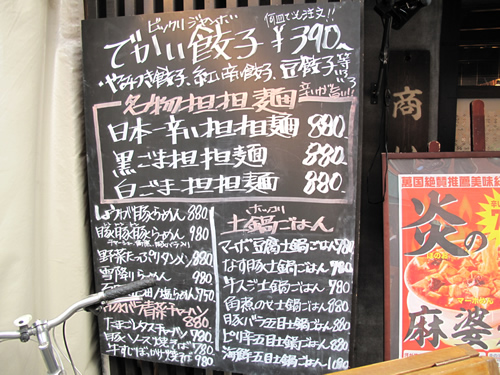 ビックリジャンボ
何皿でも注文!!
でかい餃子 ¥390
やみつき餃子、紅い辛い餃子、豆餃子等
いろいろ
名物担担麺
日本一辛い担担麺 880
黒ごま担担麺 880
白ごま担担麺 880
しょうが豚らーめん 880
豚豚豚らーめん 980
野菜たっぷりタンメン 880
雪降りらーめん 980
塩らーめん 750
豚バラ青菜チャーハン 880
たまごレタスチャーハン 780
豚ソース焼そば 780
牛すじぼっかけ焼そば 980
ホッコリ
土鍋ごはん
マーボ豆腐土鍋ごはん 980
なす豚土鍋ごはん 780
牛スジ土鍋ごはん 980
角煮のせ土鍋ごはん 880
豚バラ五目土鍋ごはん 880
ピリ辛五目土鍋ごはん 880
海鮮五目土鍋ごはん 1080
商
居国絶賛推薦美味
炎の
ほのお
マーボ
麻婆